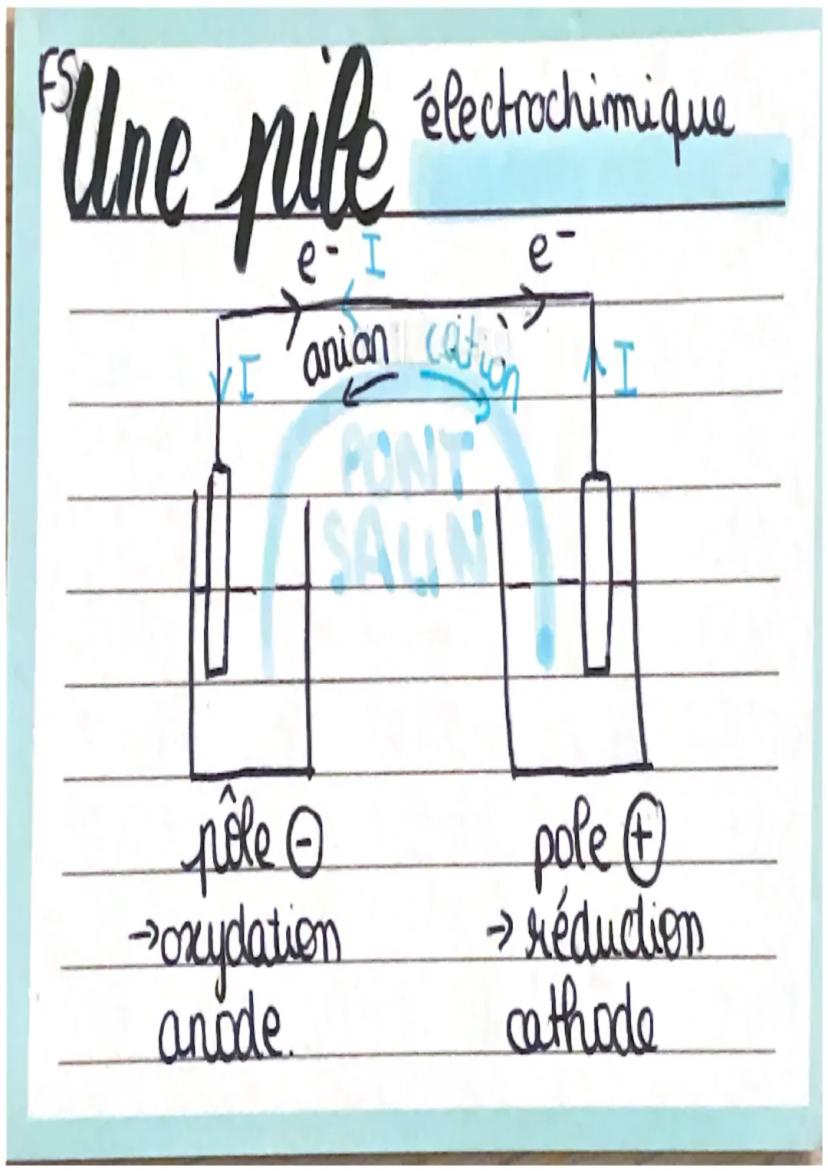 FS
Une pile électrochimique
e- I e-
anion cation
I I
PONT
SALIN
pôle - pole +
→oxydation → réduction
anode. cathode